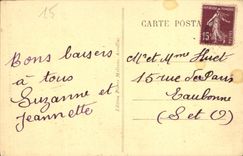 15
CARTE POSTA
15
Bons baisers
à tous
Suzanne et
Jeannette
Mr et Mme Huet
15 rue de Paris
Eaubonne
(S et O)